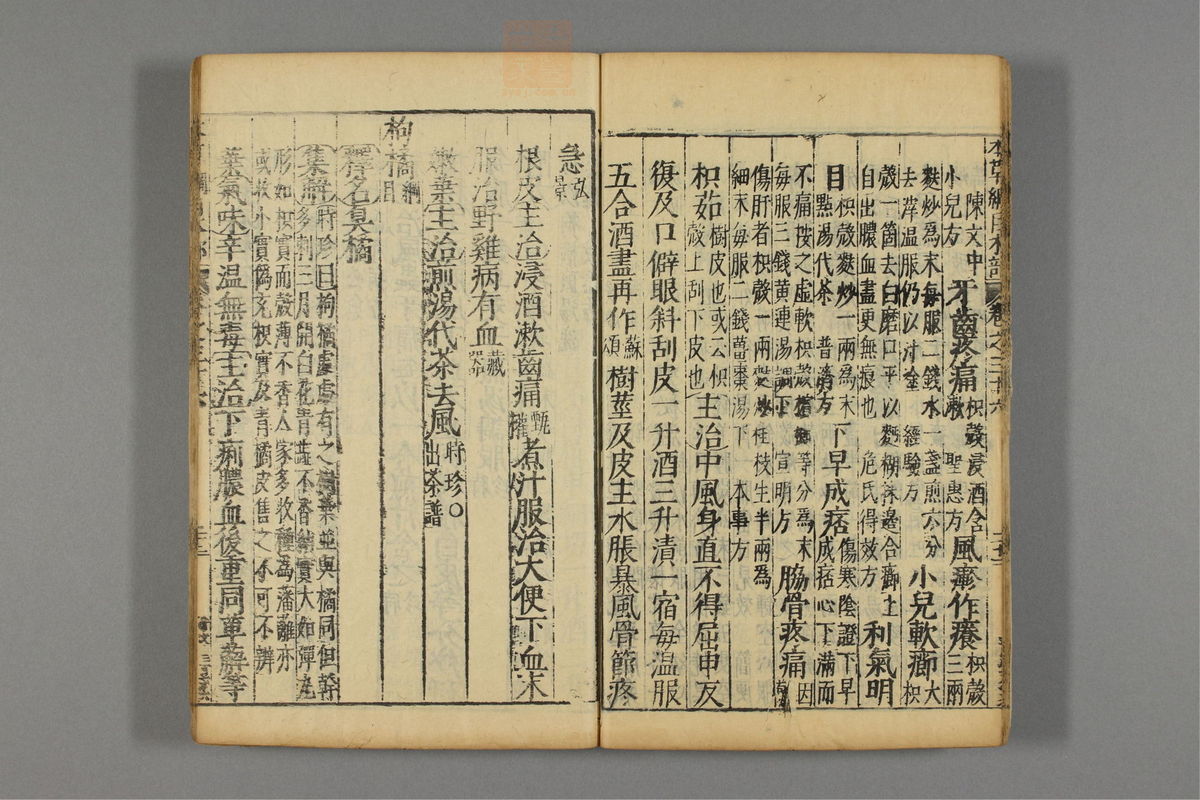 本草綱目木部 卷之三十六
小兒方 陳文中 牙齒疼痛 枳殼浸酒含漱 聖惠方 風瘮作癢 枳殼三兩
麩炒為末每服二錢水一盞煎六分去滓温服仍以汁塗 經驗方 小兒軟癤 大枳
殼一箇去白磨口平以麪糊抹邊合癤上自出膿血盡更無痕也 危氏得效方 利氣明
目 枳殼麩炒一兩為末點湯代茶 普濟方 下早成痞 傷寒陰證下早成痞心下滿而
不痛按之虛軟枳殼檳榔等分為末每服三錢黃連湯調下 宣明方 脇骨疼痛 因
傷肝者枳殼一兩麩炒桂枝生半兩為細末每服二錢薑棗湯下 本事方
枳茹 樹皮也或云枳殼上刮下皮也 主治中風身直不得屈申反
復及口僻眼斜刮皮一升酒三升漬一宿每温服
五合酒盡再作 蘇頌 樹莖及皮主水脹暴風骨節疼
急 弘景
根皮主治浸酒漱齒痛 甄權 煮汁服治大便下血末
服治野雞病有血 藏器
嫩葉主治煎湯代茶去風 時珍○出茶譜
枸橘 綱目
釋名臭橘
集解 時珍曰枸橘處處有之樹葉並與橘同但幹多刺三月開白花青蕊不香結實大如彈丸
形如枳實而殼薄不香人家多收種為藩籬亦或收小實偽充枳實及青橘皮售之不可不辨
葉氣味辛温無毒主治下痢膿血後重同萆薢等